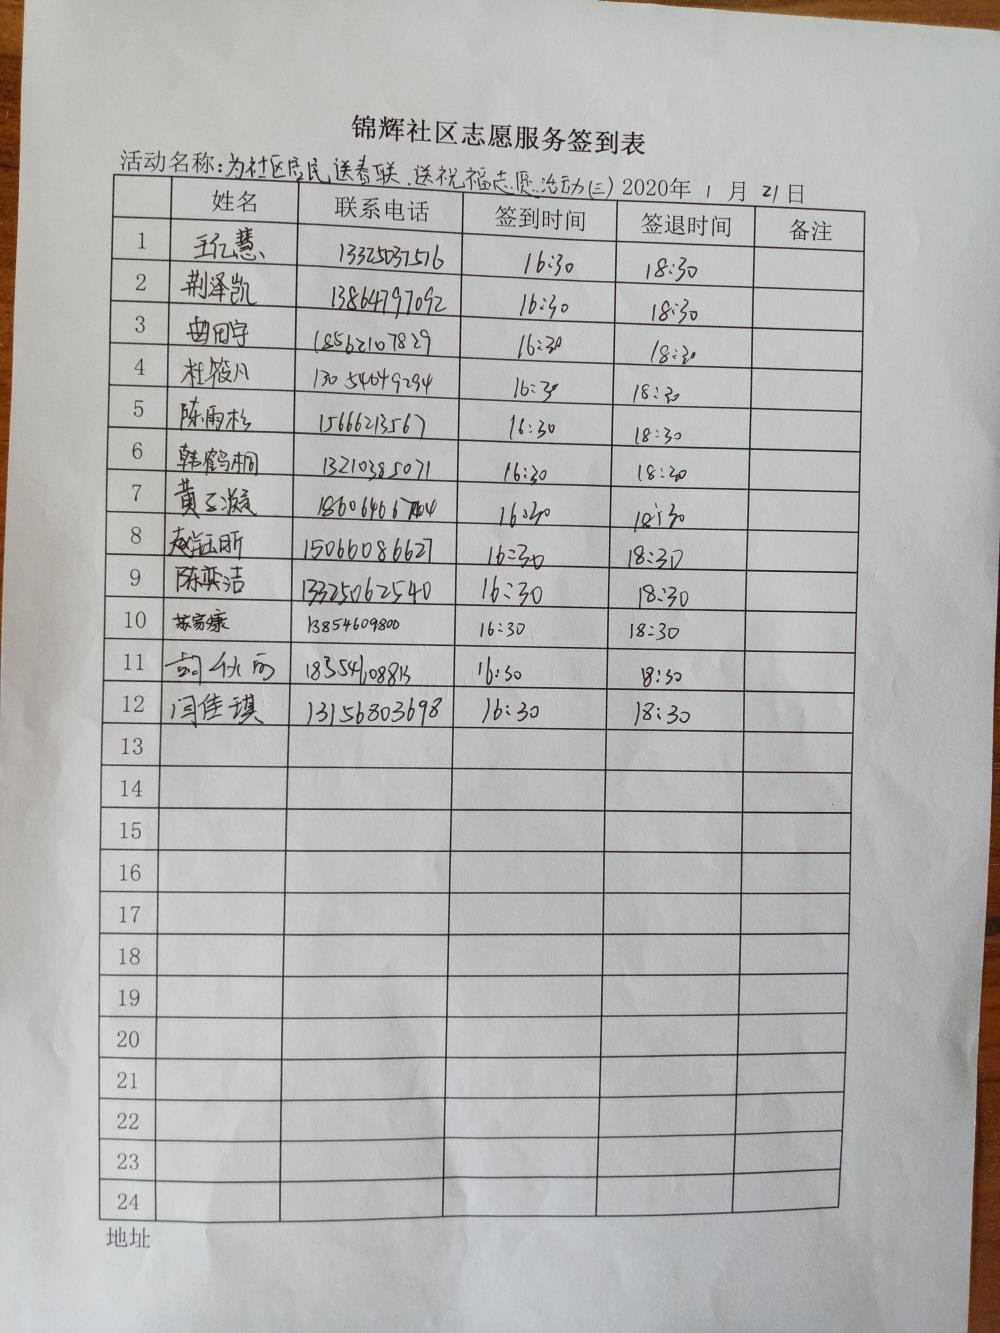 锦辉社区志愿服务签到表
活动名称:为社区居民送春联、送祝福志愿活动(三) 2020年 1 月 21 日
姓名 联系电话 签到时间 签退时间 备注
1 王亿慧 13325031516 16:30 18:30
2 荆泽凯 13864797092 16:30 18:30
3 曲田宇 18562107829 16:30 18:30
4 杜筱凡 13054649294 16:30 18:30
5 陈雨杉 15666213567 16:30 18:30
6 韩鹤桐 13210385071 16:30 18:30
7 黄 16:30 18:30
8 赵钰昕 15066086627 16:30 18:30
9 陈奕洁 13325062540 16:30 18:30
10 苏家康 13854609800 16:30 18:30
11 16:30 18:30
12 闫佳琪 13156803698 16:30 18:30
13
14
15
16
17
18
19
20
21
22
23
24
地址